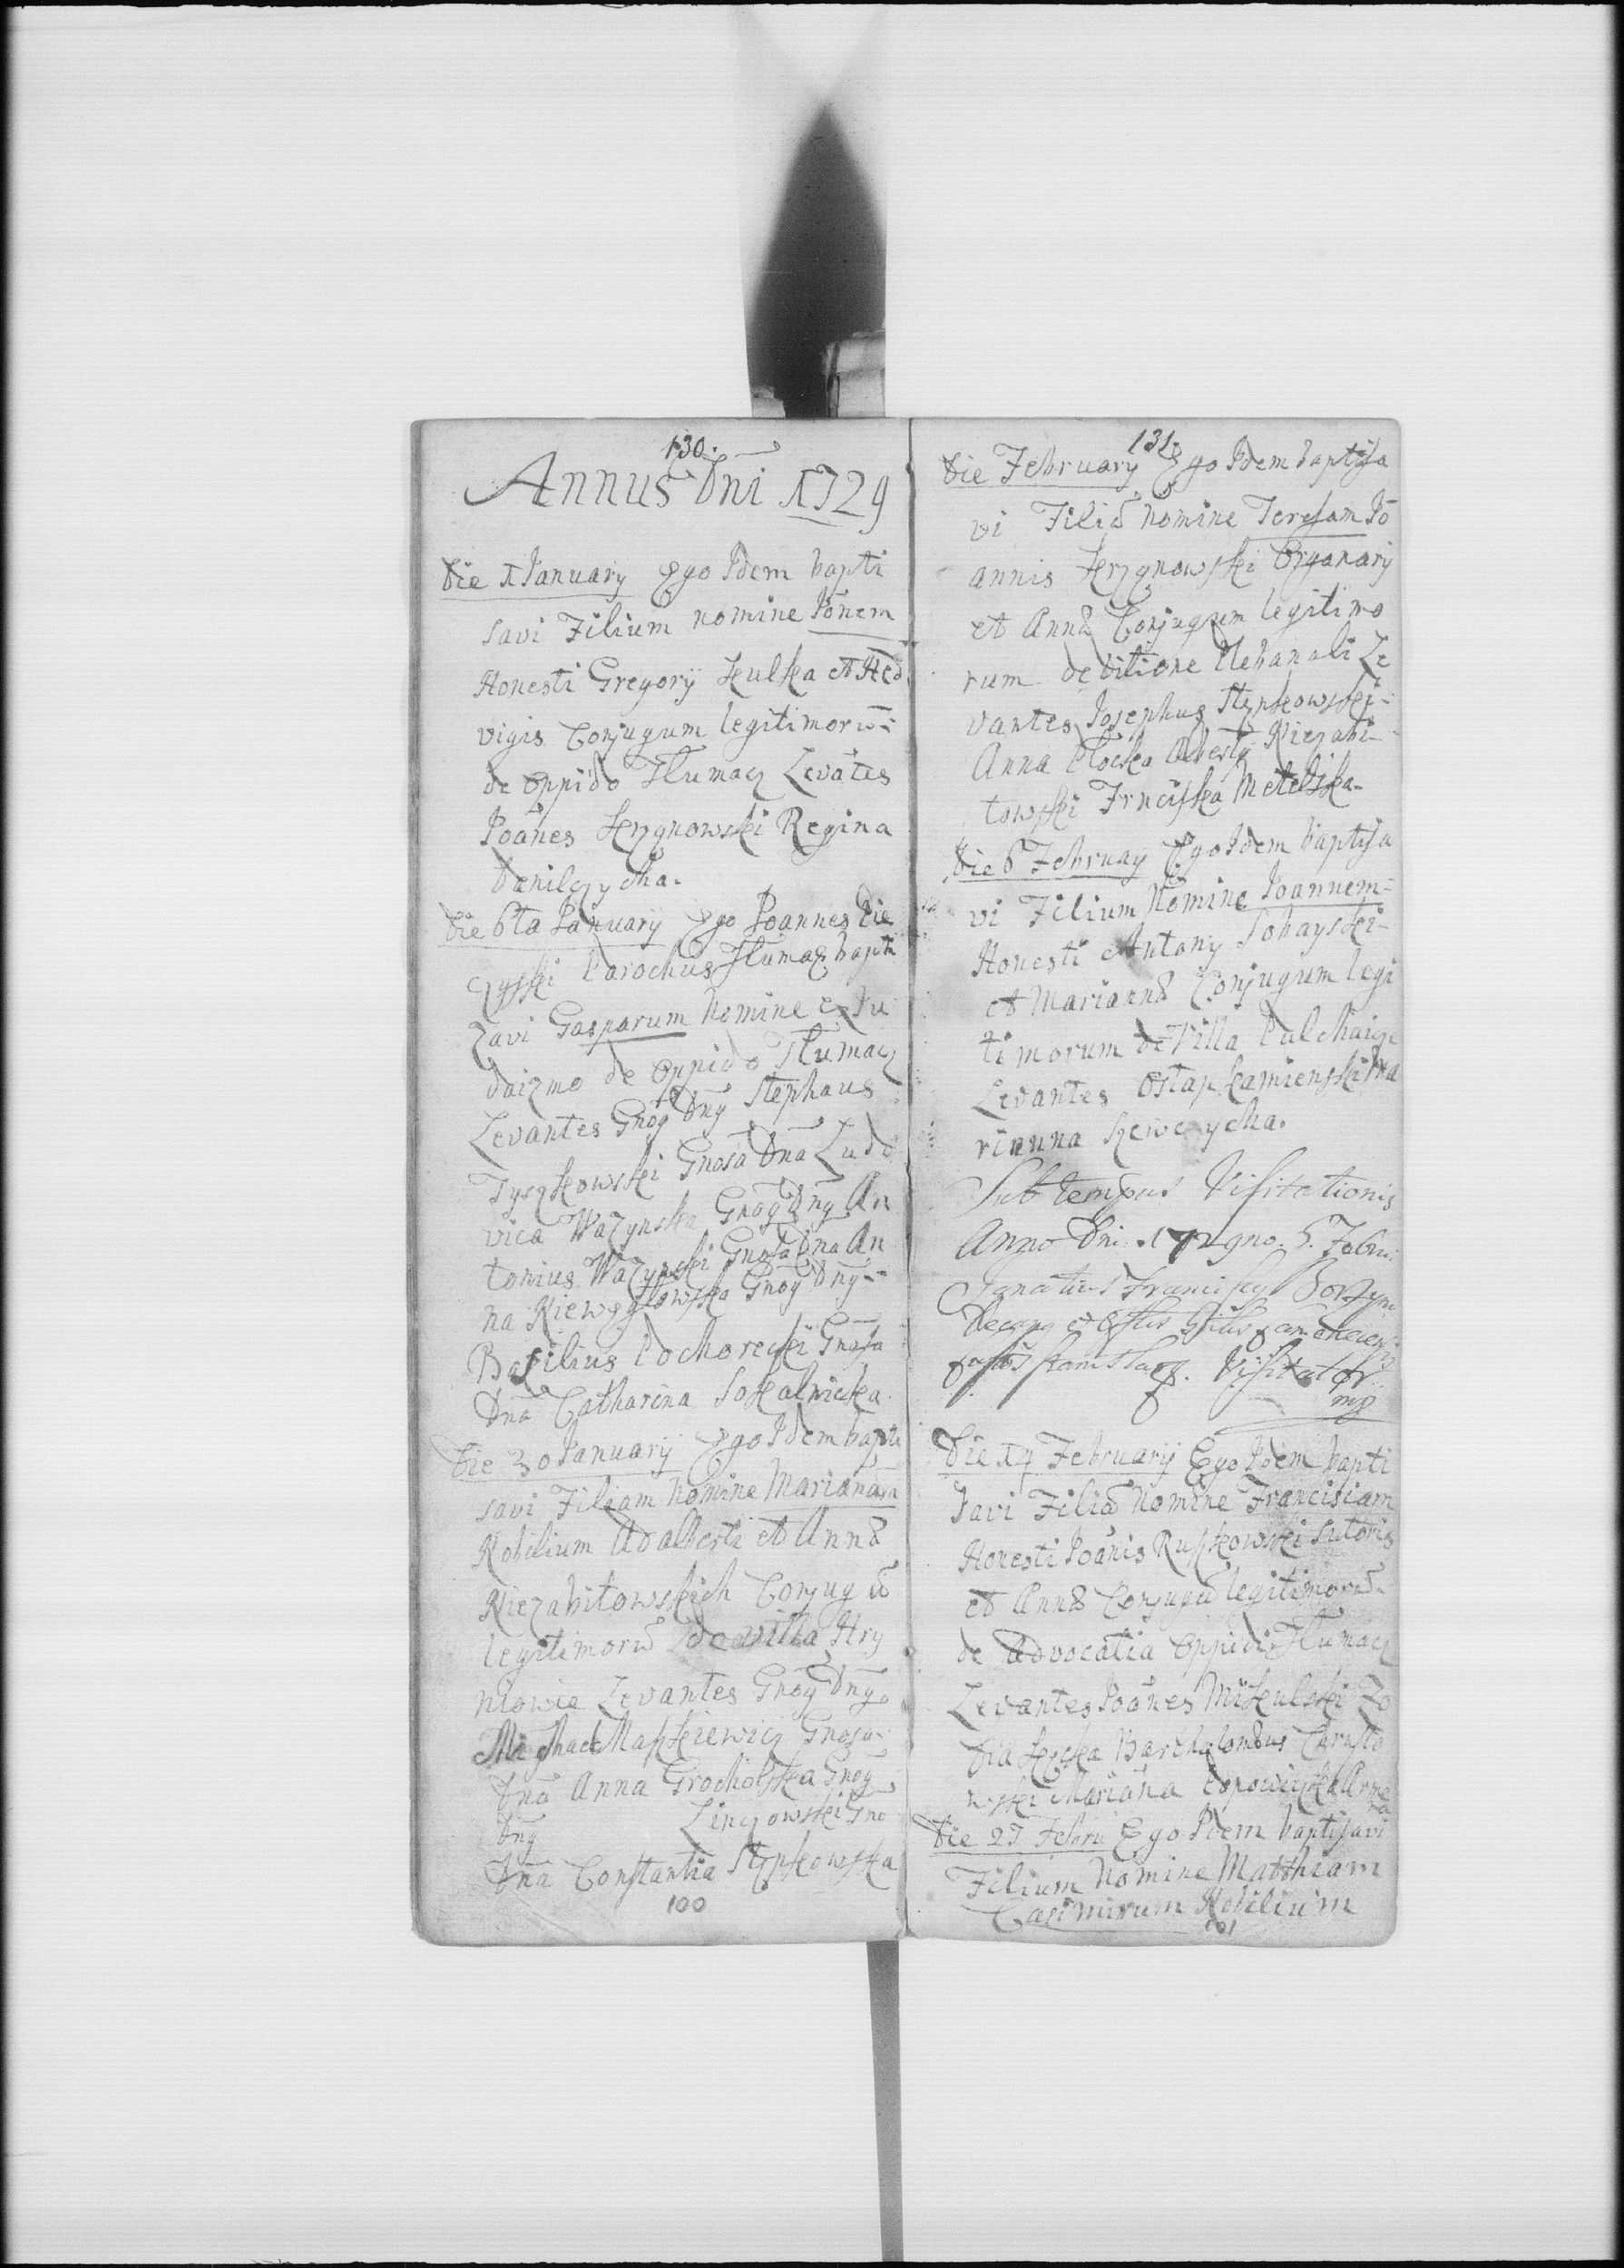 130.
Annus Dni 1729
Die 1 January Ego Idem bapti
savi Filium nomine Ioñem
Honesti Gregory Kulka et Hed
vigis Conjugum legitimorũ
de Oppido Tłumacz Levãtes
Joães Kerzgnowski Regina
Danilczycha.
Die 6ta January Ego Joannes Die
czyski Parochus Tłumacz bapti
zavi Gasparum Nomine ex Iu
daizmo de Oppido Tłumacz
Levantes Gnos Dns Stephaus
Tyszkowski Gnosa Dna Ludo
vica Wazynska Gnos Dns An
tonius Wazynski Gnosa Dna An
na Niewegłowska Gnos Dns
Basilius Pochorecki Gnosa
Dna Catharina Sokalnicka
Die 30 January Ego Idem bapti
savi Filiam Nomine Mariañam
Nobilium Adalberti et Annæ
Niezabitowskich Conjugũ
legitimorũ de villa Hry
niowce Levantes Gnos Dns
Michael Maszkiewicz Gnosa
Dna Anna Grocholska Gnos
Dns Linczowski Gno
Dna Constantia Stępkowska
100
131.
Die February Ego Idem baptisa
vi Filiã Nomine Teresam Jo
annis Kerzgnowski Organary
et Annæ Conjugum legitimo
rum de ditione Plebanali Le
vantes Josephus Stępkowski
Anna Płocka Niezabi
towski Frnciska Metelska
Die 6 February Ego Idem baptisa
vi Filium Nomine Joannem
Honesti Antony Sobayski
et Mariannæ Conjugum legi
timorum de Villa Palchaicze
Levantes Ostap Kamienski Ma
rianna Szewczycha.
Sub tempus Visitationis
Anno Dni 1729no. 5. Febru:
Ignatius Franciscus
Decanus et
Visitator
mp
Die 14 February Ego Idem bapti
savi Filiã Nomine Franciscam
Honesti Joãnis Ruszkowski Sutoris
et Annæ Conjugũ legitimorũ
de Advocatia Oppidi Tłumacz
Levantes Joães Mikulski Zo
fia Bartholomæus Chrusto
wski Mariãna
Die 27 Febru Ego Idem baptisavi
Filium Nomine Matthiam
Casimirum Nobilium
101